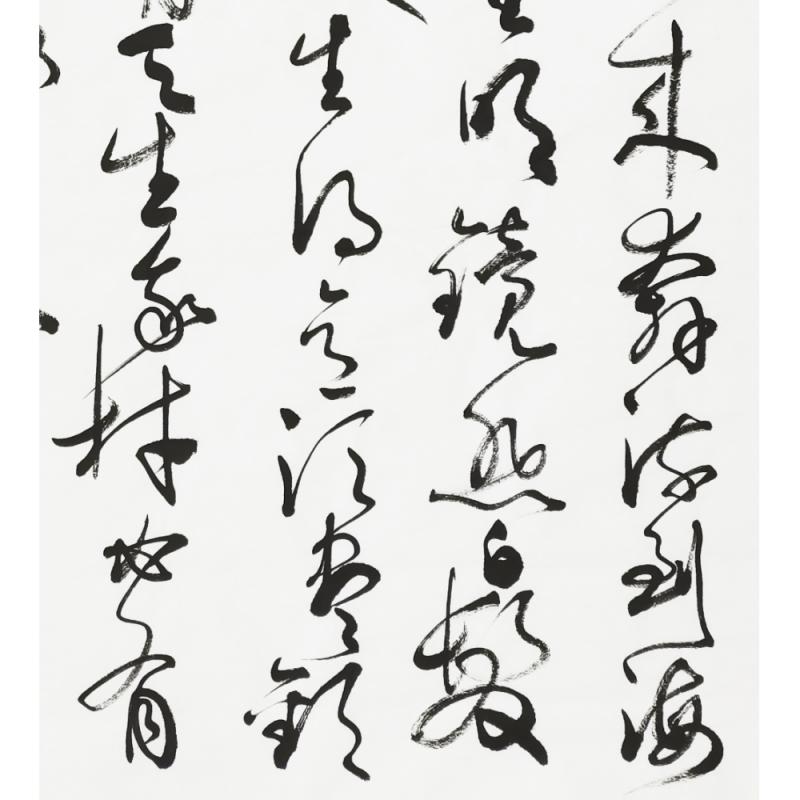 來奔流到海
明鏡悲白髮
生得意須盡歡
天生我材必有